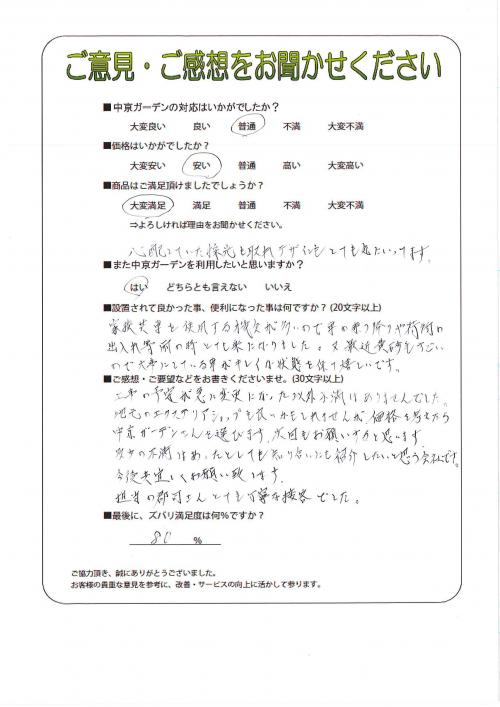 ご意見・ご感想をお聞かせください
■中京ガーデンの対応はいかがでしたか？
大変良い 良い 普通 不満 大変不満
■価格はいかがでしたか？
大変安い 安い 普通 高い 大変高い
■商品はご満足頂けましたでしょうか？
大変満足 満足 普通 不満 大変不満
⇒よろしければ理由をお聞かせください。
心配していた採光も取れデザインもとても気に入ってます。
■また中京ガーデンを利用したいと思いますか？
はい どちらとも言えない いいえ
■設置されて良かった事、便利になった事は何ですか？(20文字以上)
家族共車を使用する機会が多いので車の乗り降りや荷物の
出入れ等雨の時とても楽になりました。又最近黄砂もすごい
ので大事にしている車がキレイな状態を保て嬉しいです。
■ご感想・ご要望などをお書きくださいませ。(30文字以上)
工事の予定が急に変更になった以外不満はありませんでした。
地元のエクステリアショップも良いかもしれませんが、価格を考えたら
中京ガーデンさんを選びます。次回もお願いすると思います。
多少の不満はあったとしても知り合いにも紹介したいと思う会社です。
今後共宜しくお願い致します。
担当の郡司さんとても丁寧な接客でした。
■最後に、ズバリ満足度は何%ですか？
80 %
ご協力頂き、誠にありがとうございました。
お客様の貴重な意見を参考に、改善・サービスの向上に活かして参ります。